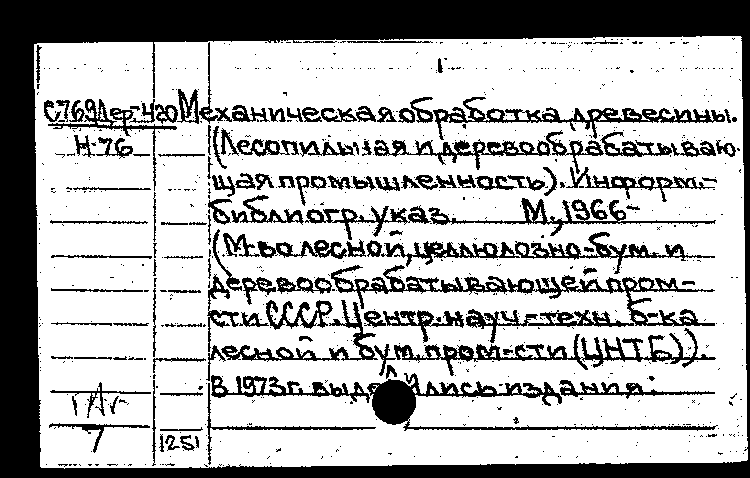 1-
С769 Дер-420 Механическая обработка древесины.
Н-76 (Лесопильная и деревообрабатываю-
щая промышленность). Информ.-
библиогр. указ. М., 1966-
(М-во лесной, целлюлозно-бум. и
деревообрабатывающей пром-
сти СССР. Центр. науч.-техн. б-ка
лесной и бум. пром-сти (ЦНТБ)).
В 1973 г. издания:
7 1251